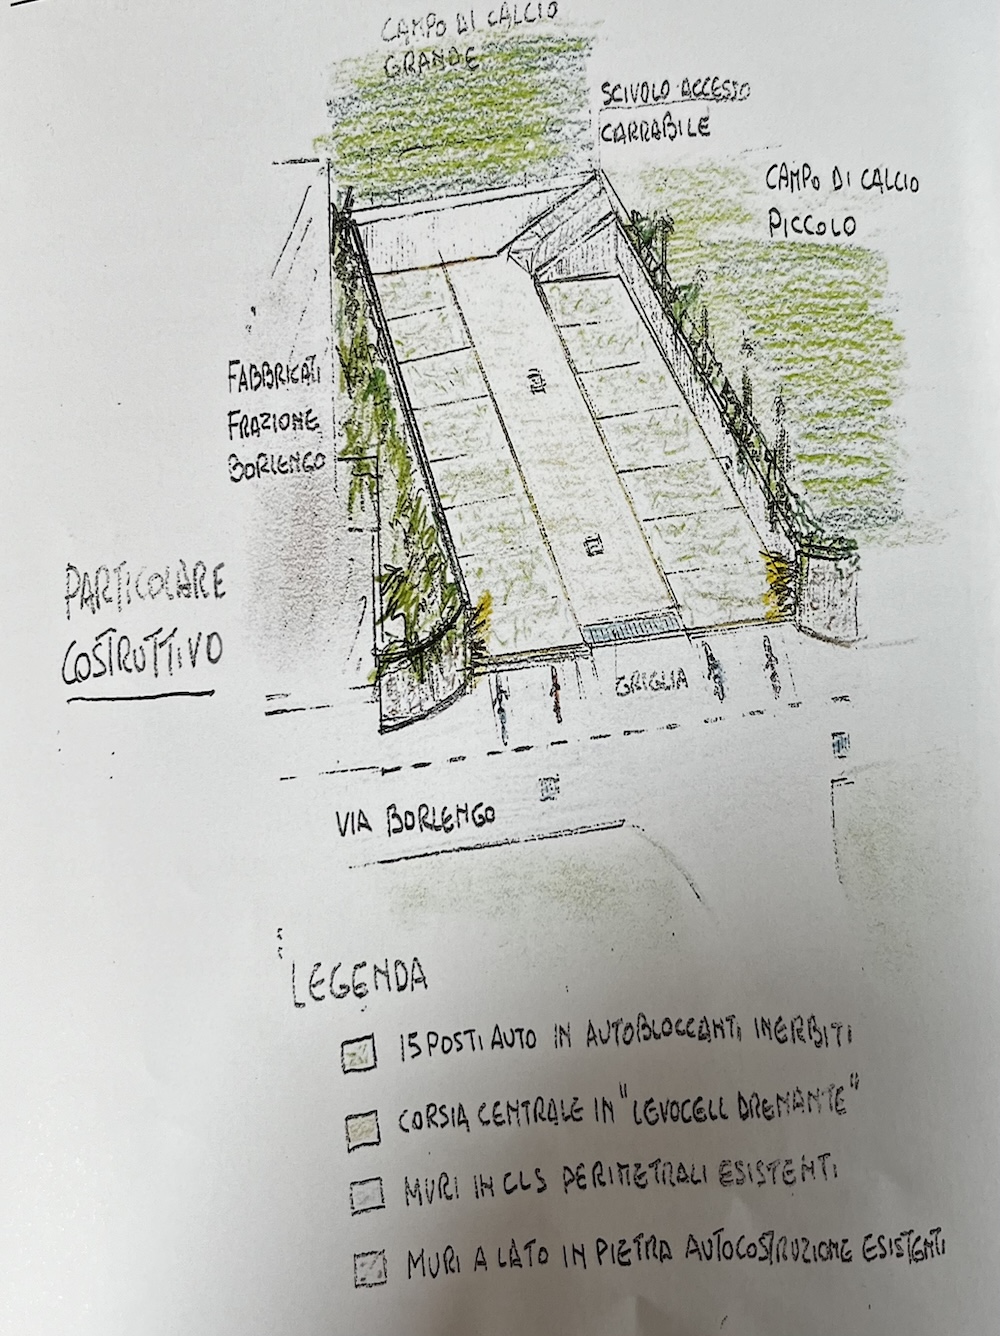 CAMPO DI CALCIO
GRANDE
SCIVOLO ACCESSO
CARRABILE
CAMPO DI CALCIO
PICCOLO
FABBRICATI
FRAZIONE
BORLENGO
PARTICOLARE
COSTRUTTIVO
GRIGLIA
VIA BORLENGO
LEGENDA
15 POSTI AUTO IN AUTOBLOCCANTI INERBITI
CORSIA CENTRALE IN "LEVOCELL DRENANTE"
MURI IN CLS PERIMETRALI ESISTENTI
MURI A LATO IN PIETRA AUTOCOSTRUZIONE ESISTENTI